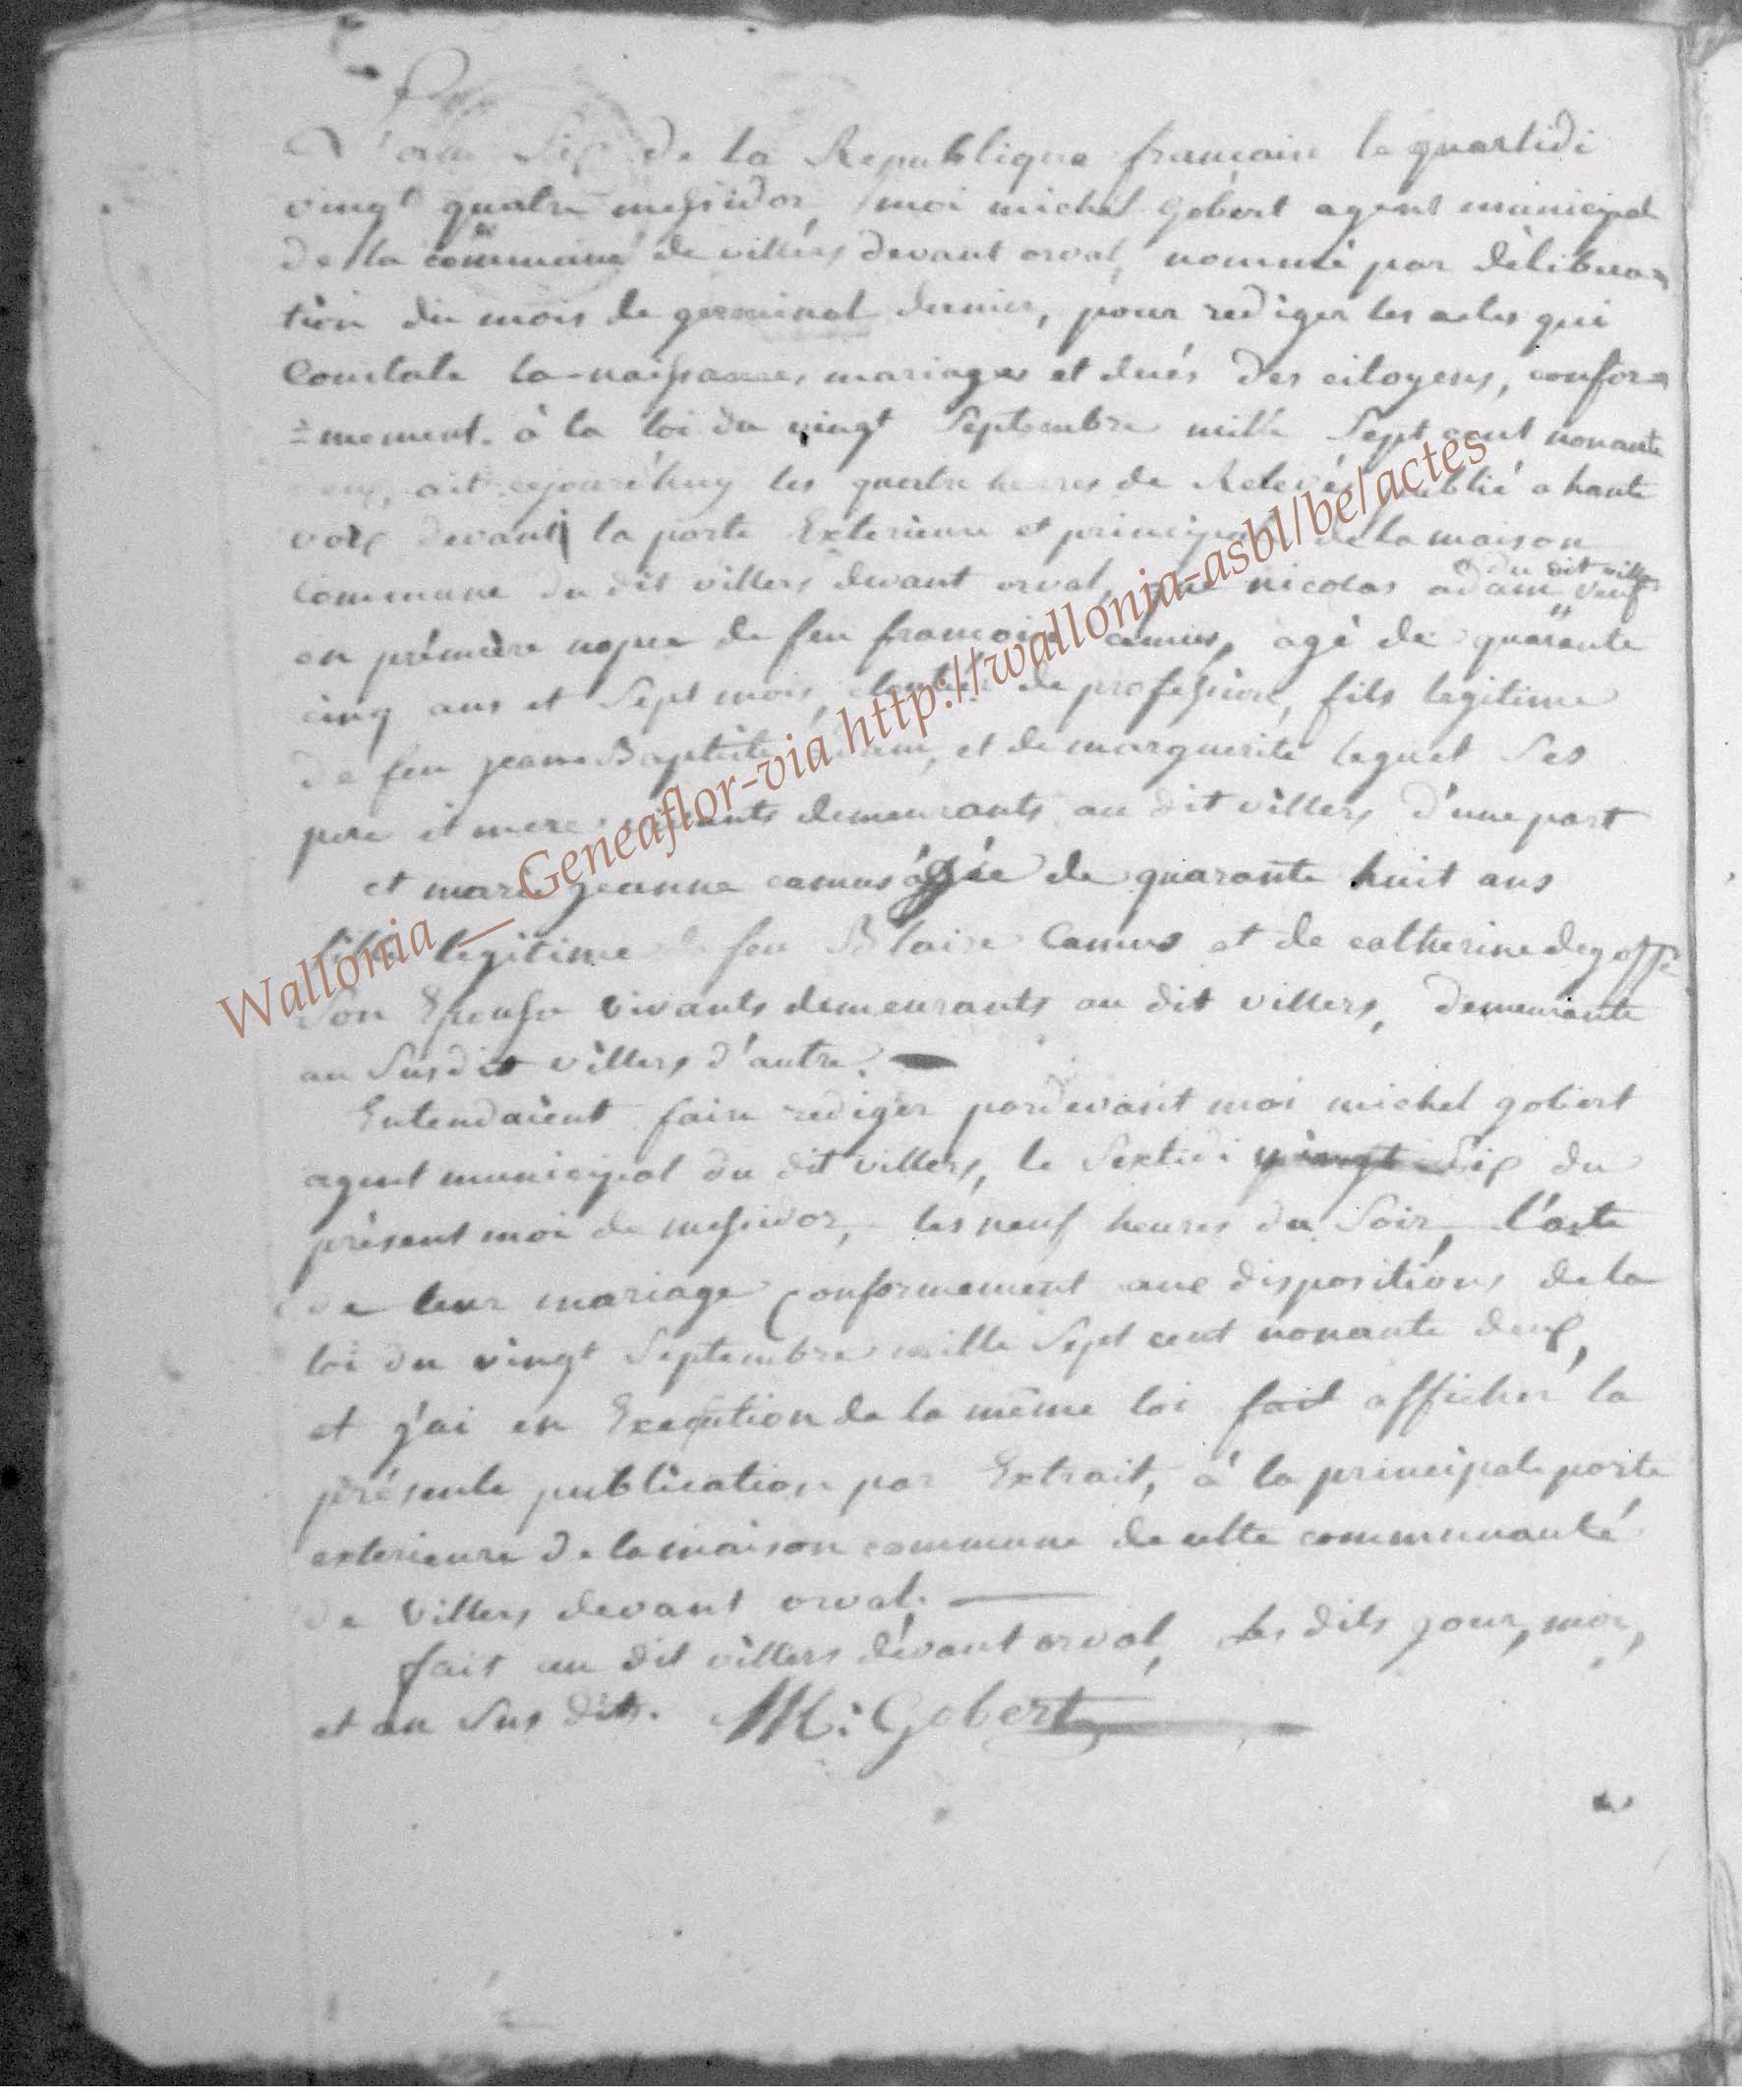 L'an Six de la Republique francaise le quartidi
vingt quatre messidor, moi michel Gobert agent municipal
de la commune de villers devant orval, nommé par délibera=
tion du mois de germinal dernier, pour rediger les actes qui
Constate la naissances, mariages et ducés des citoyens, confor=
=mement à la loi du vingt Septembre mille Sept cent nonante
deux, ait ajourd'huy les quatre heures de Relevée publié a haute
voix devant la porte Exterieure et principale de la maison
commune du dit villers devant orval, que nicolas adam du dit villers veuf
en prémière nopce de feu francoise camus, agé de quarante
cinq ans et Sept mois, cloutier de profession, fils legitime
de feu jean Baptiste adam, et de marguerite laguet Ses
pere et mere vivants demeurants au dit villers d'une part
et marie jeanne camus agée de quarante huit ans
fille legitime de feu Blaise Camus et de catherine degoffe
Son Epouse vivants demeurants au dit villers, demeurante
au Susdit villers d'autre.
Entendaient faire rediger pardevant moi michel gobert
agent municipal du dit villers, le Sextidi vingt Six du
présent moi de messidor, les neuf heures du Soir, l'acte
de leur mariage conformement aux dispositions de la
loi du vingt Septembre mille Sept cent nonante deux,
et j'ai en Execution de la même loi fait afficher la
présente publication par Extrait, à la principale porte
exterieure de la maison commune de cette communauté
de Villers devant orval.
fait au dit villers dévant orval, les dits jour, moi,
et an Sus dits. M: Gobert
Wallonia __ Geneaflor-via http://wallonia-asbl/be/actes